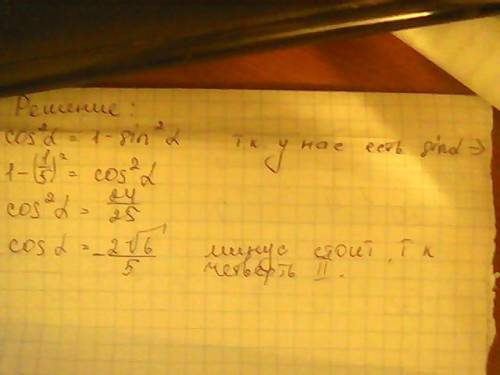 Решение:
cos²α = 1 - sin²α т к у нас есть sinα →
1 - (1/5)² = cos²α
cos²α = 24/25
cos α = -2√6/5 минус стоит, т к
четверть II.